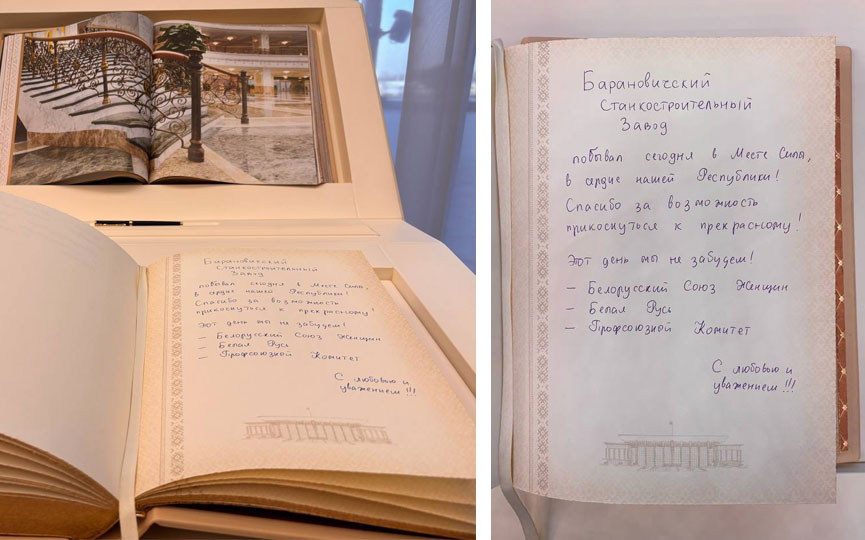 Барановичский
Станкостроительный
Завод
побывал сегодня в Месте Силы,
в сердце нашей Республики!
Спасибо за возможность
прикоснуться к прекрасному!
Этот день мы не забудем!
– Белорусский Союз Женщин
– Белая Русь
– Профсоюзной Комитет
С любовью и
уважением!!!
Барановичский
Станкостроительный
Завод
побывал сегодня в Месте Силы,
в сердце нашей Республики!
Спасибо за возможность
прикоснуться к прекрасному!
Этот день мы не забудем!
– Белорусский Союз Женщин
– Белая Русь
– Профсоюзной Комитет
С любовью и
уважением!!!